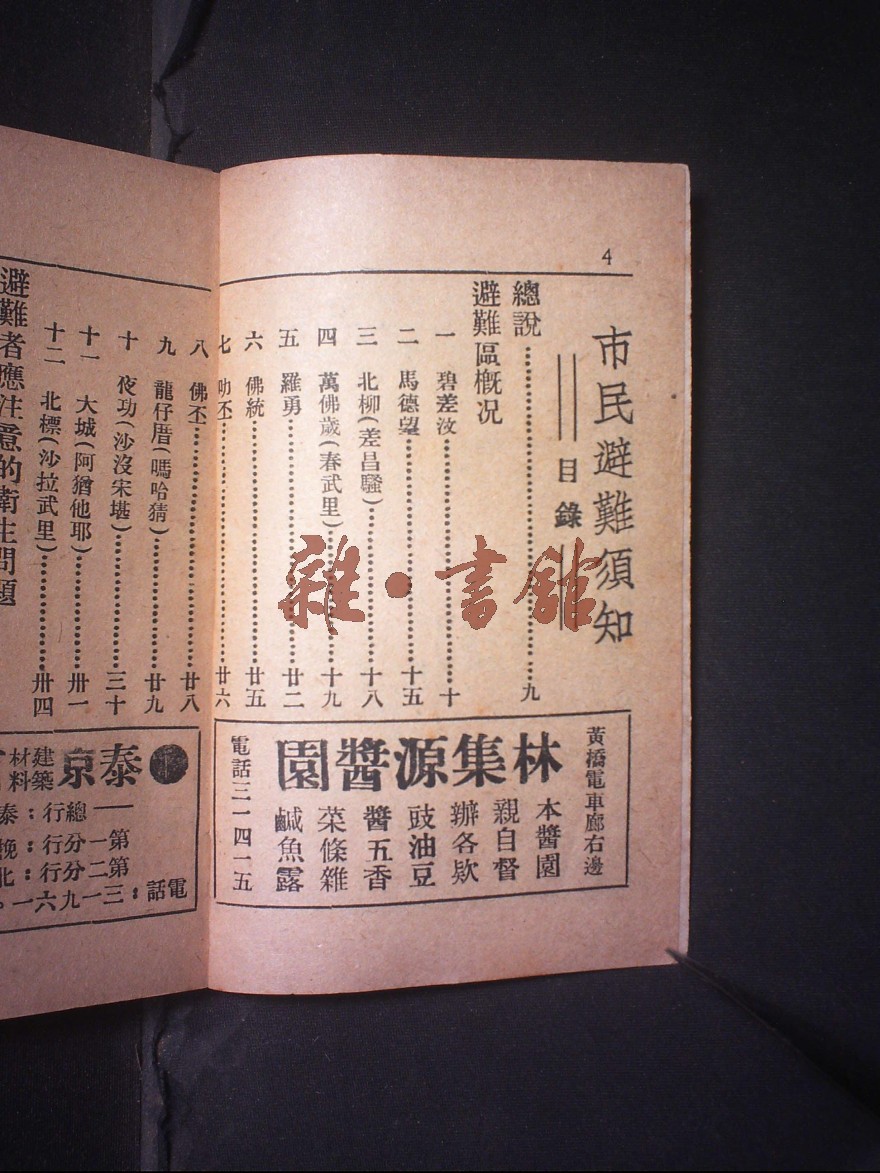 4
市民避難須知
目錄
總說……九
避難區概況
一 碧差汶……十
二 馬德望……十五
三 北柳(差昌騷)……十八
四 萬佛歲(春武里)……十九
五 羅勇……廿二
六 佛統……廿五
七 叻丕……廿六
八 佛丕……廿八
九 龍仔厝(嗎哈猜)……廿九
十 夜功(沙沒宋堪)……三十
十一 大城(阿猶他耶)……卅一
十二 北標(沙拉武里)……卅四
避難者應注意的衛生問題
黃橋電車廊右邊
林集源醬園
本醬園
親自督
辦各欵
豉油豆
醬五香
菜條雜
鹹魚露
電話三一四一五
泰京
建築
材料
總行:泰
第一分行:挽
第二分行:北
電話:三一九六一
雜·書館